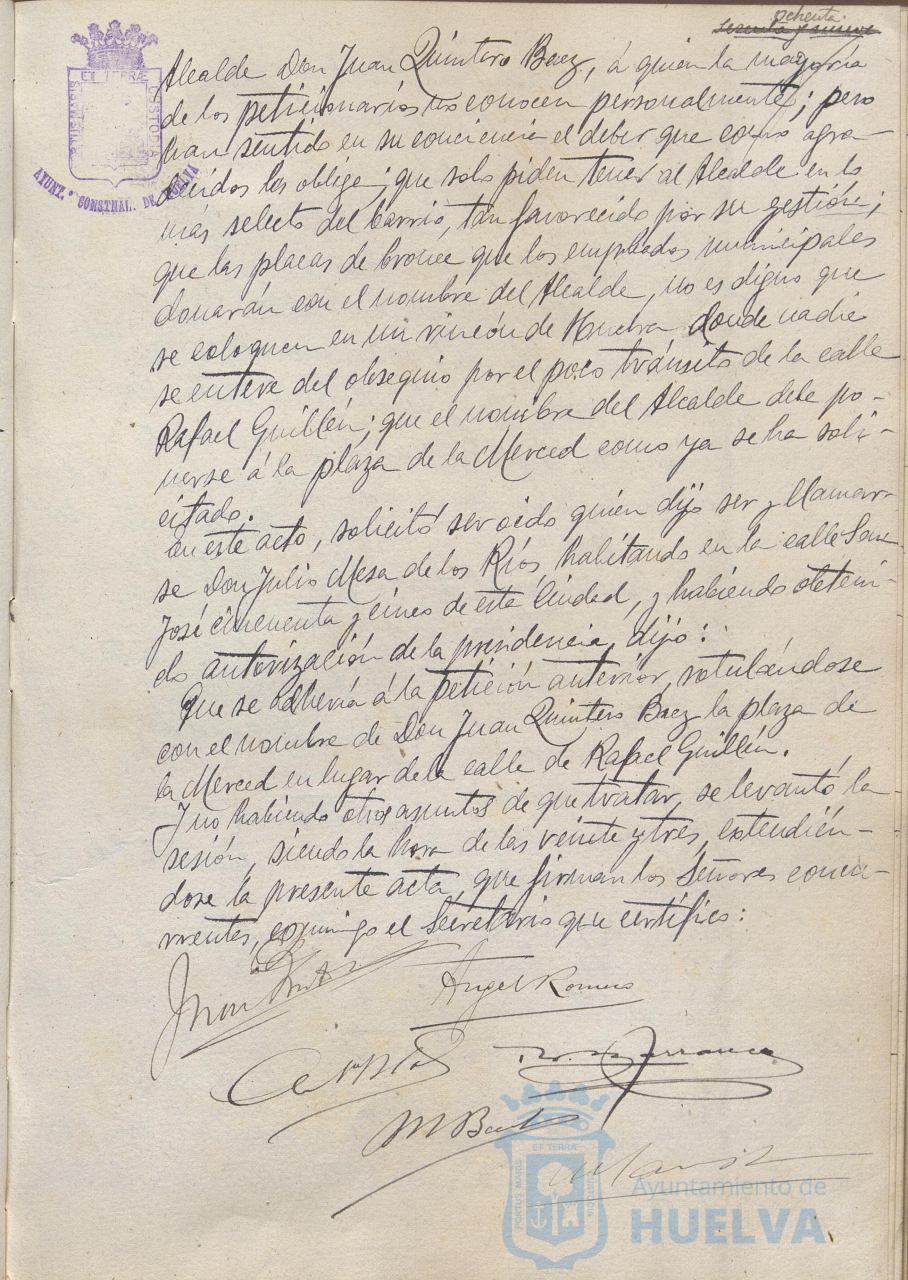 ochenta
sesenta y nueve
ET TERRÆ
CUSTODIA
AYUNT.º CONSTNAL. DE HUELVA
Alcalde Don Juan Quintero Baez, á quien la mayoría
de los peticionarios no conocen personalmente; pero
han sentido en su conciencia el deber que como agra-
decidos les obliga; que solo piden tener al Alcalde en lo
más selecto del barrio, tan favorecido por su gestión;
que las placas de bronce que los empleados municipales
donarán con el nombre del Alcalde, no es digno que
se coloquen en un rincón de Huelva donde nadie
se entere del obsequio por el poco tránsito de la calle
Rafael Guillén; que el nombre del Alcalde debe po-
nerse á la plaza de la Merced como ya se ha soli-
citado.
En este acto, solicitó ser oido quien dijo ser y llamar-
se Don Julio Mesa de los Ríos habitando en la calle San
José cincuenta y cinco de esta Ciudad, y habiendo obteni-
do autorización de la presidencia, dijo:
Que se adhería á la petición anterior, rotulándose
con el nombre de Don Juan Quintero Baez la plaza de
la Merced en lugar de la calle de Rafael Guillén.
Y no habiendo otros asuntos de que tratar, se levantó la
sesión, siendo la hora de las veinte y tres, extendién-
dose la presente acta, que firman los Señores concu-
rrentes, conmigo el Secretario que certifico:
Angel Romero
Barranca
M Bar
ET TERRÆ
PORTUS MARIS
CUSTODIA
Ayuntamiento de
HUELVA